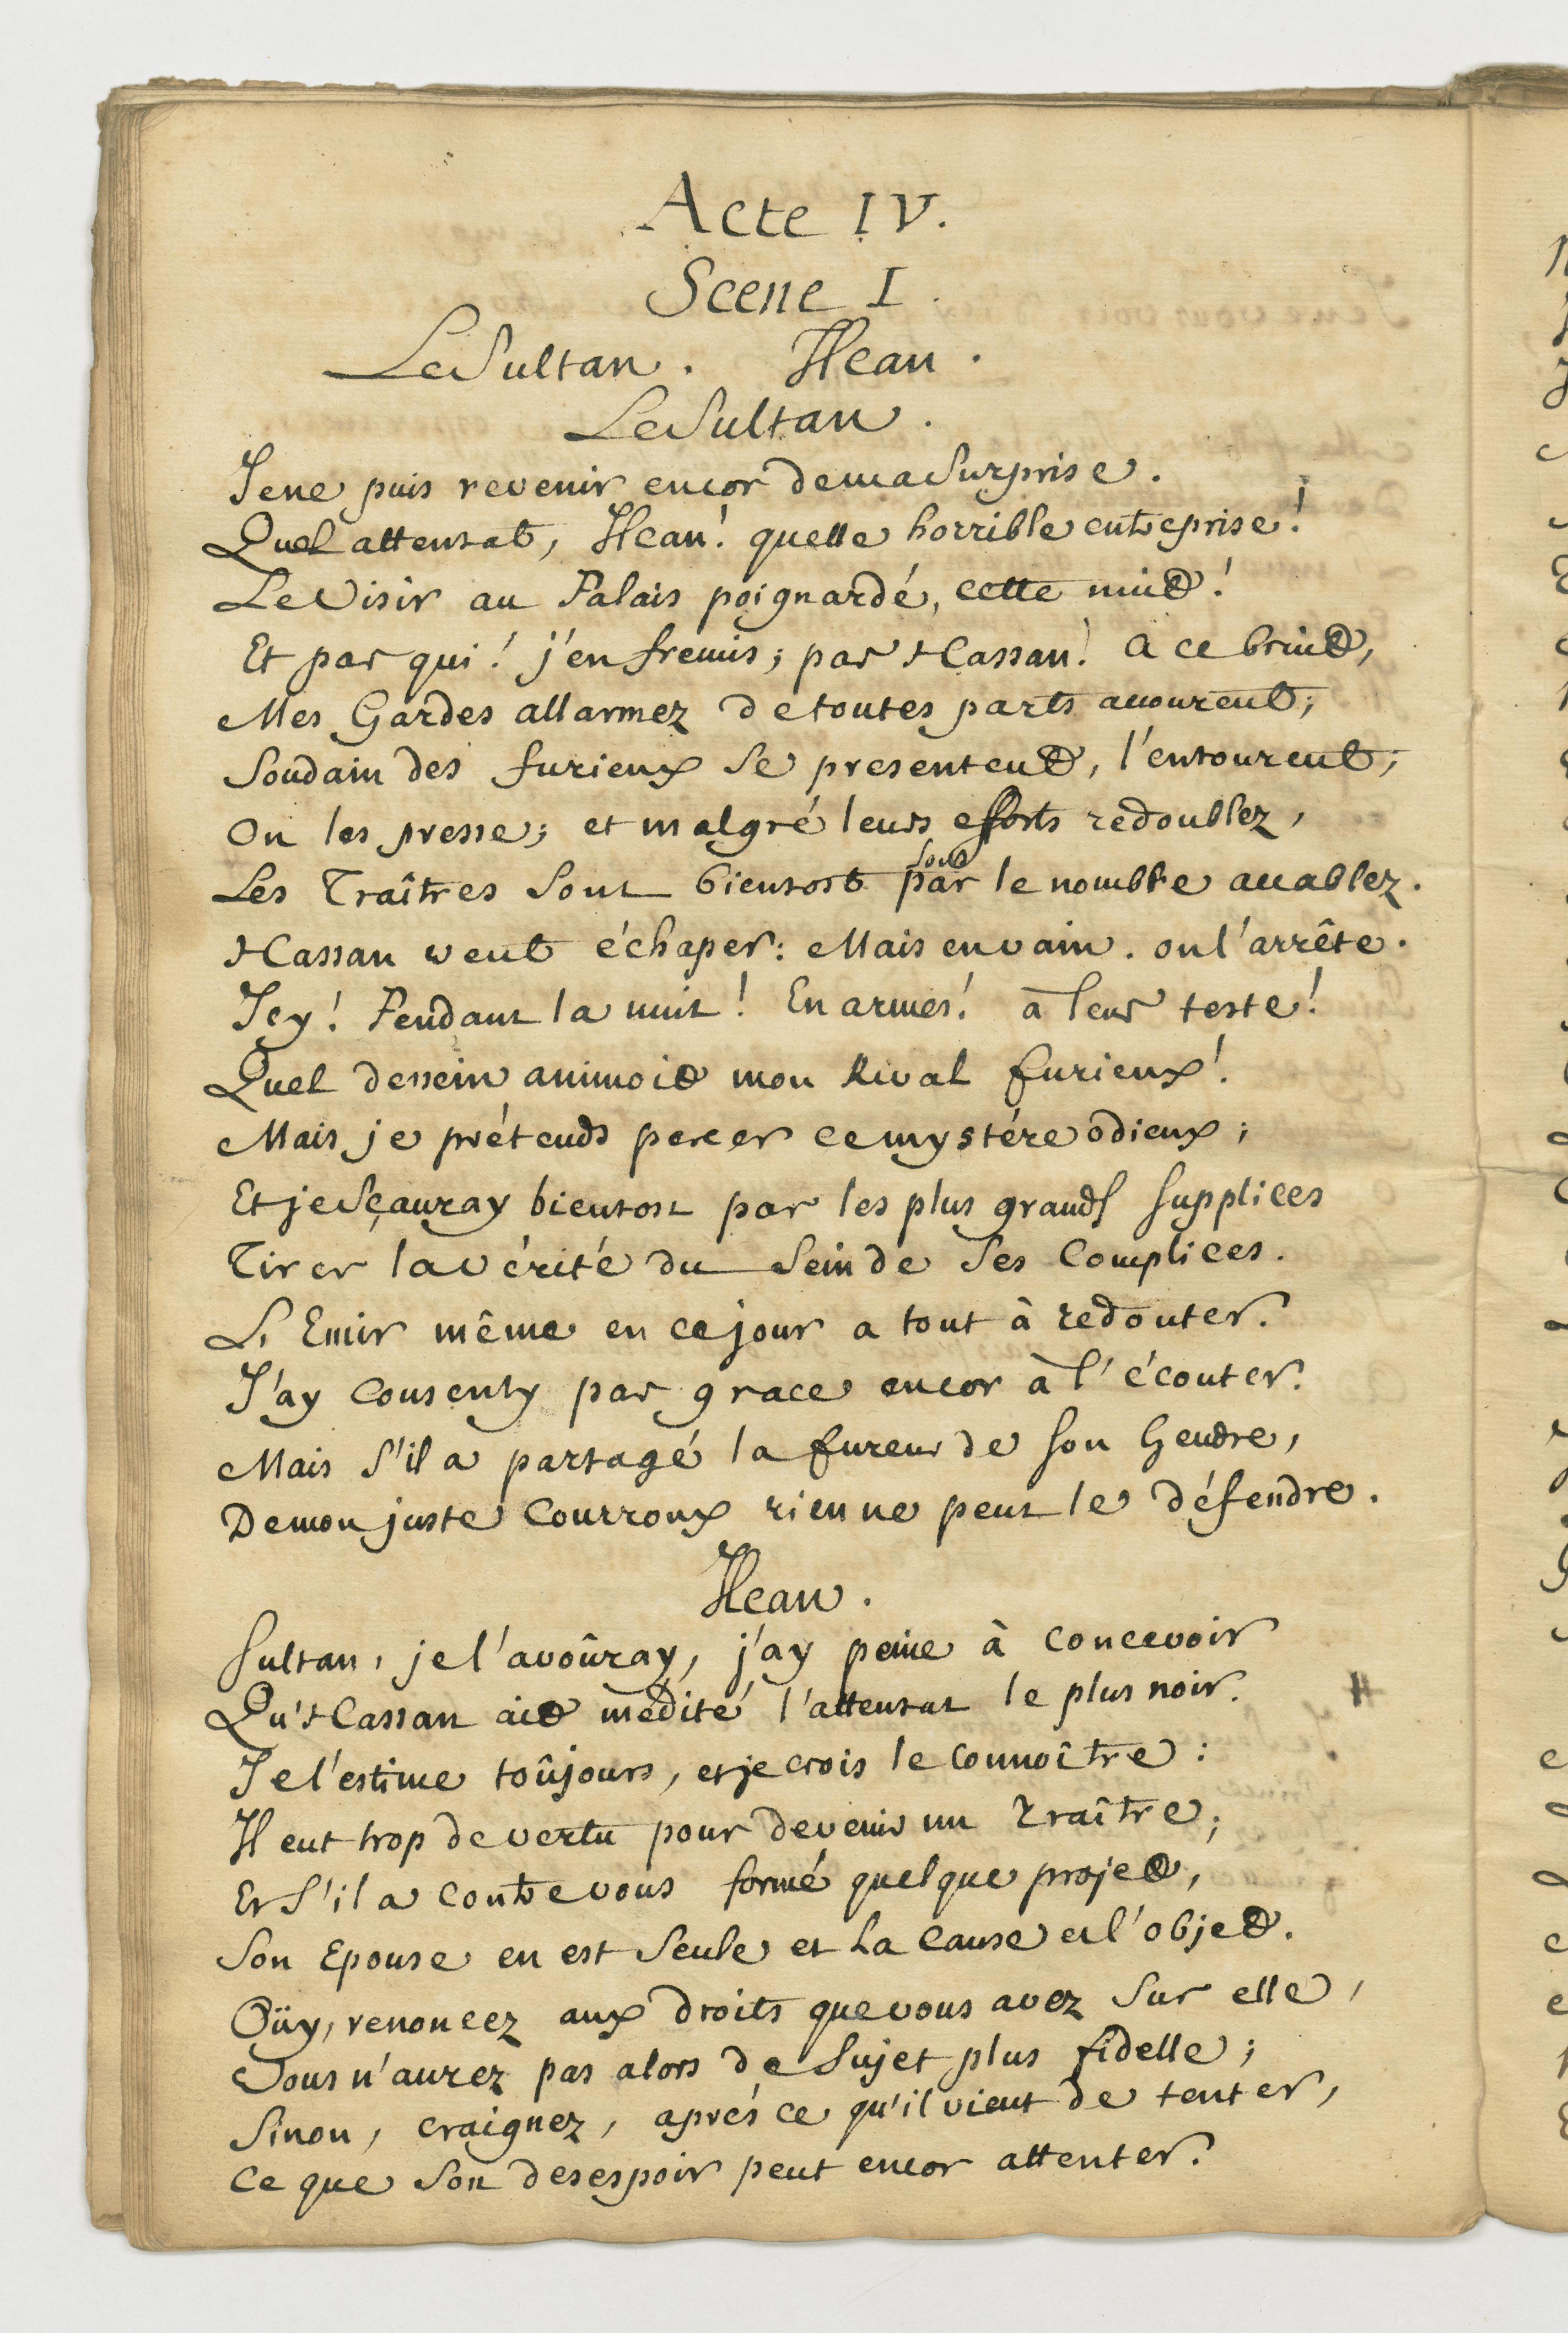 Acte IV.
Scene I.
Le Sultan. Ilcan.
Le Sultan.
Je ne puis revenir encor de ma Surprise.
Quel attentat, Ilcan! quelle horrible entreprise!
Le Visir au Palais poignardé, cette nuit!
Et par qui! j'en fremis; par Hassan! a ce bruit,
Mes Gardes allarmez de toutes parts accourent;
Soudain des furieux se presentent, l'entourent;
On les presse; et malgré leurs efforts redoublez,
sous
Les Traîtres sont bientost par le nombre accablez.
Hassan veut échaper: Mais en vain. on l'arrête.
Icy! Pendant la nuit! En armes! à leur teste!
Quel dessein animoit mon Rival furieux!
Mais je prétends percer ce mystére odieux;
Et je sçauray bientost par les plus grands supplices
Tirer la vérité du sein de ses Complices.
L'Emir même en ce jour a tout à redouter.
J'ay Consenty par grace encor à l'écouter.
Mais s'il a partagé la fureur de son Gendre,
De mon juste Courroux rien ne peut le défendre.
Ilcan.
Sultan, je l'avoûray, j'ay peine à concevoir
Qu'Hassan ait médité l'attentat le plus noir.
Je l'estime toûjours, et je crois le connoître:
Il eut trop de vertu pour devenir un Traître;
Et s'il a contre vous formé quelque projet,
Son Epouse en est seule et la Cause et l'objet.
Oüy, renoncez aux droits que vous avez sur elle,
Vous n'aurez pas alors de sujet plus fidelle;
Sinon, craignez, aprés ce qu'il vient de tenter,
Ce que son desespoir peut encor attenter.